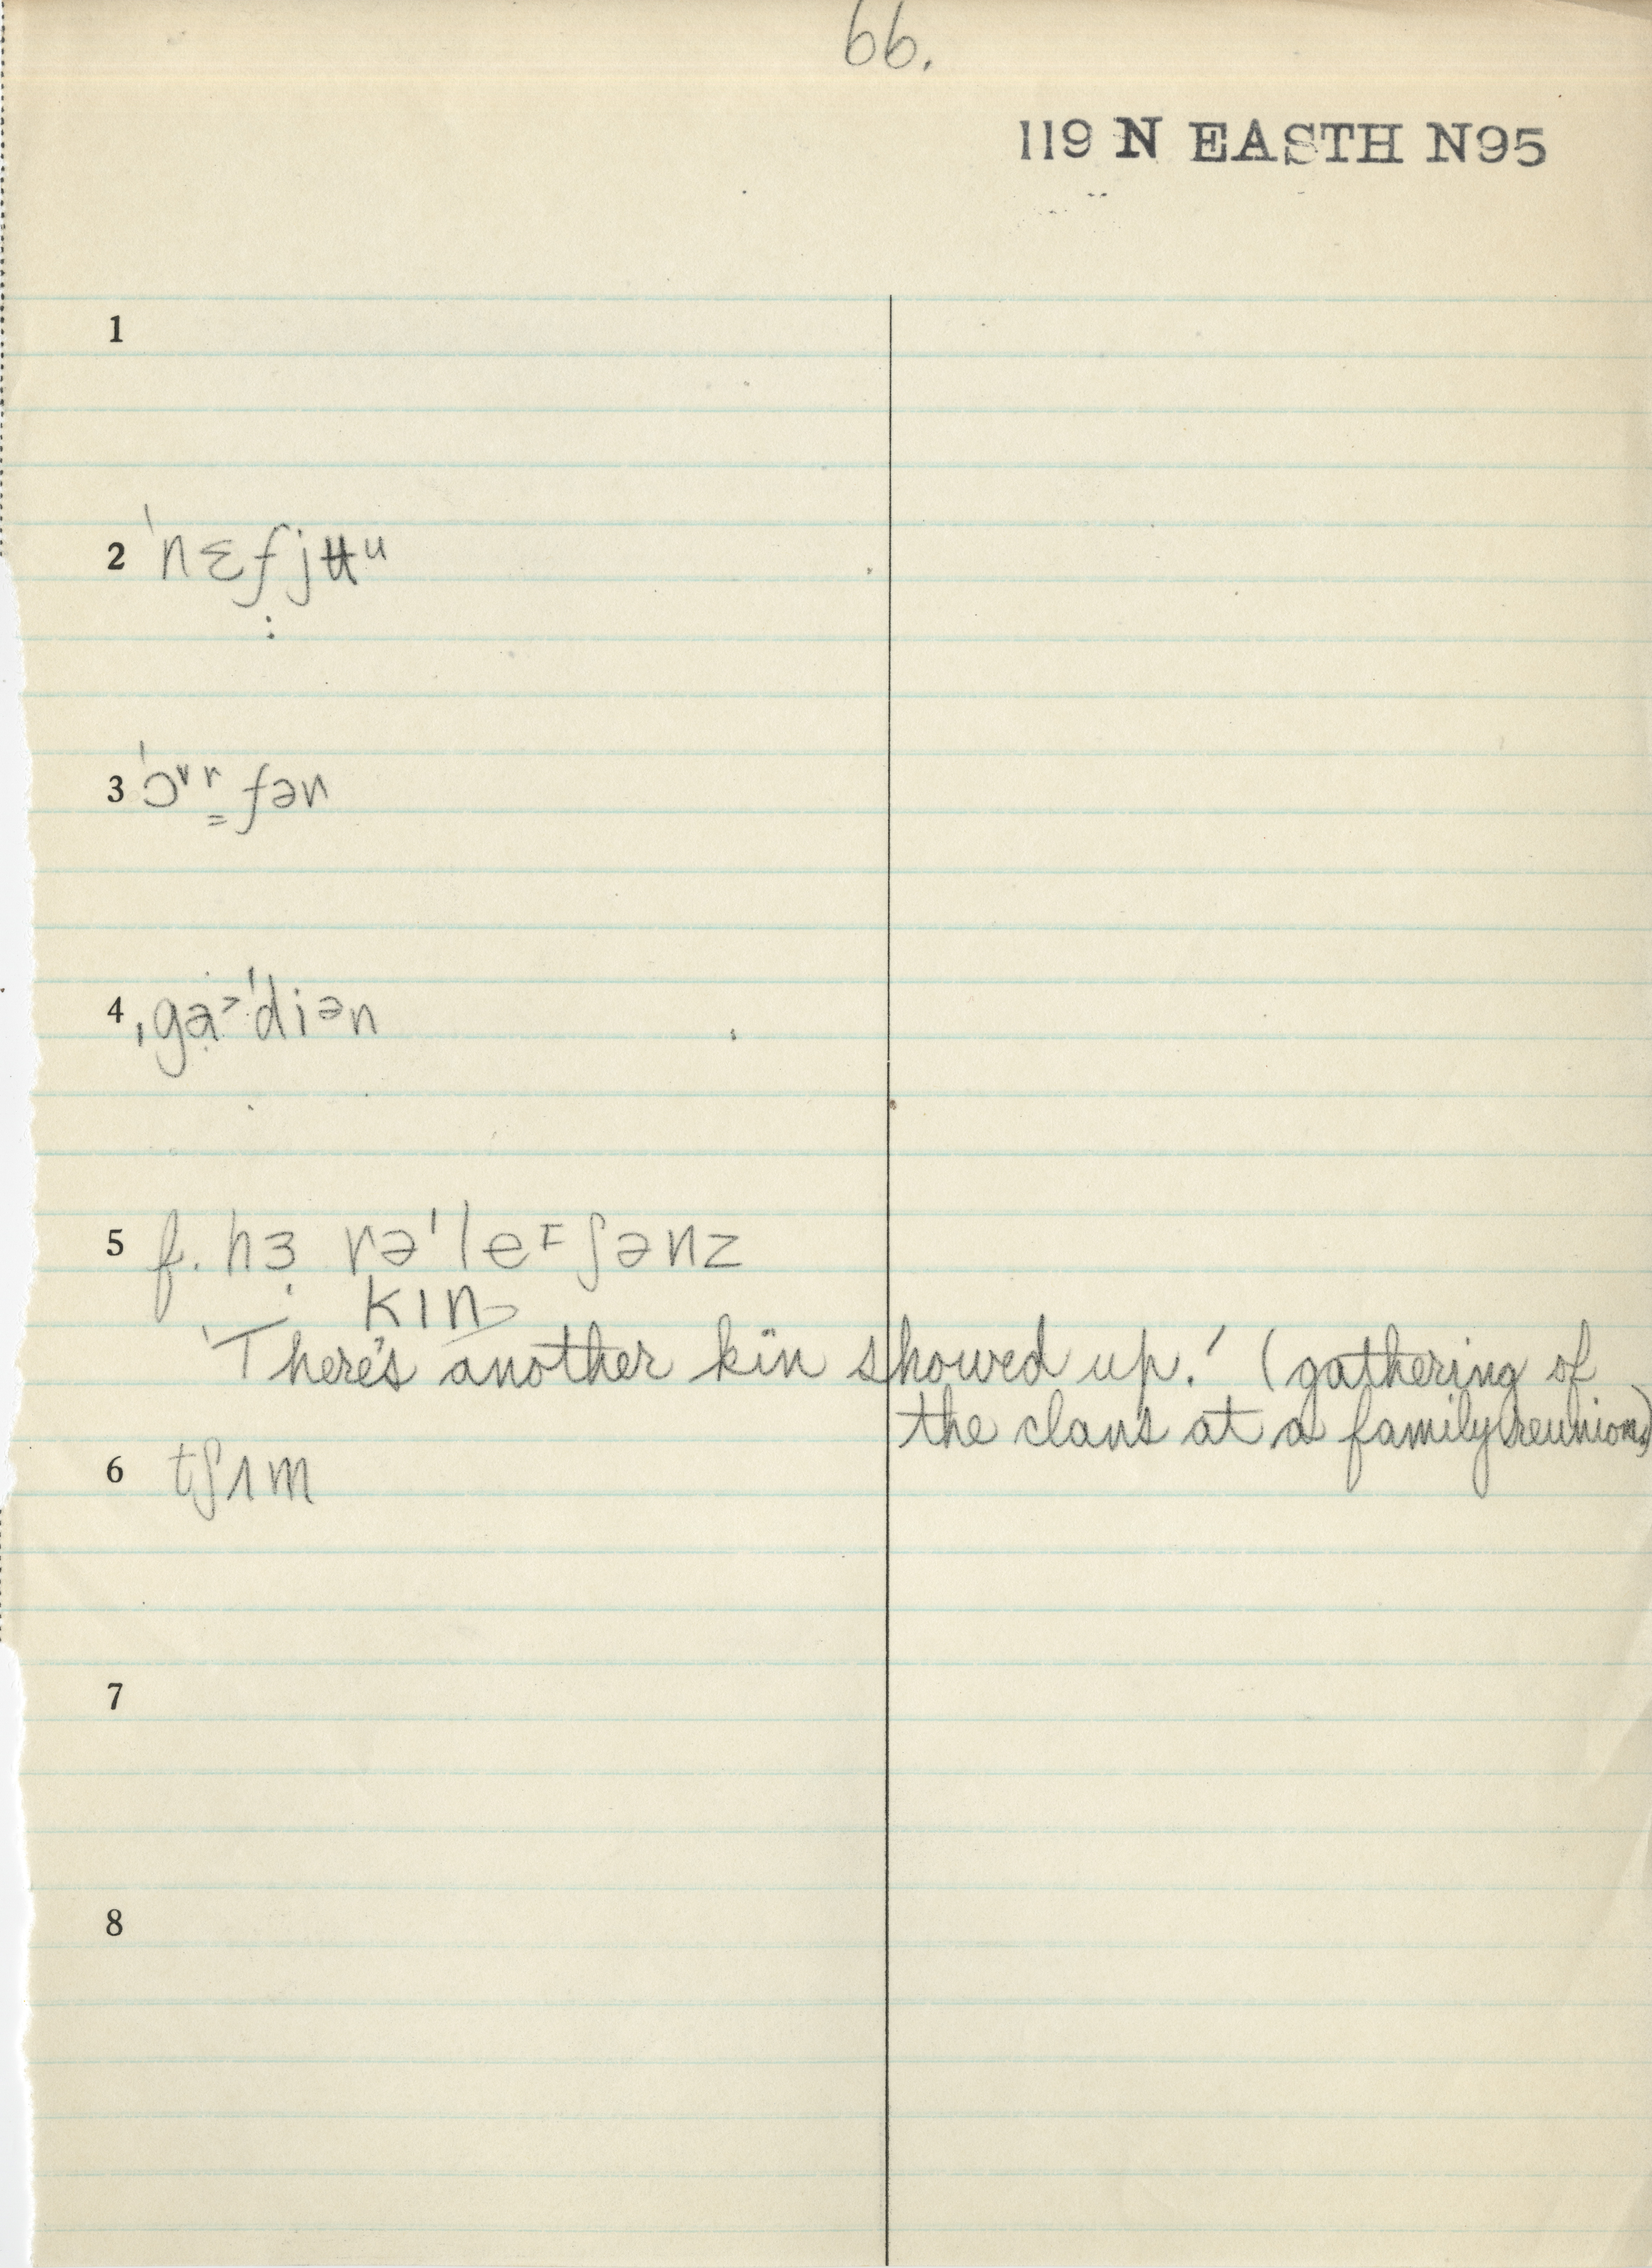 66.
119 N EASTH N95
1
2 ˈnɛfjʉᵘ
3 ˈɔᵛʳfən
4 ˌgɑ˞ˈdiən
5 f. hɜ rəˈleᶦʃənz
kɪn
'There's another kin showed up.' (gathering of
the clans at a family reunion)
6 tʃʌm
7
8